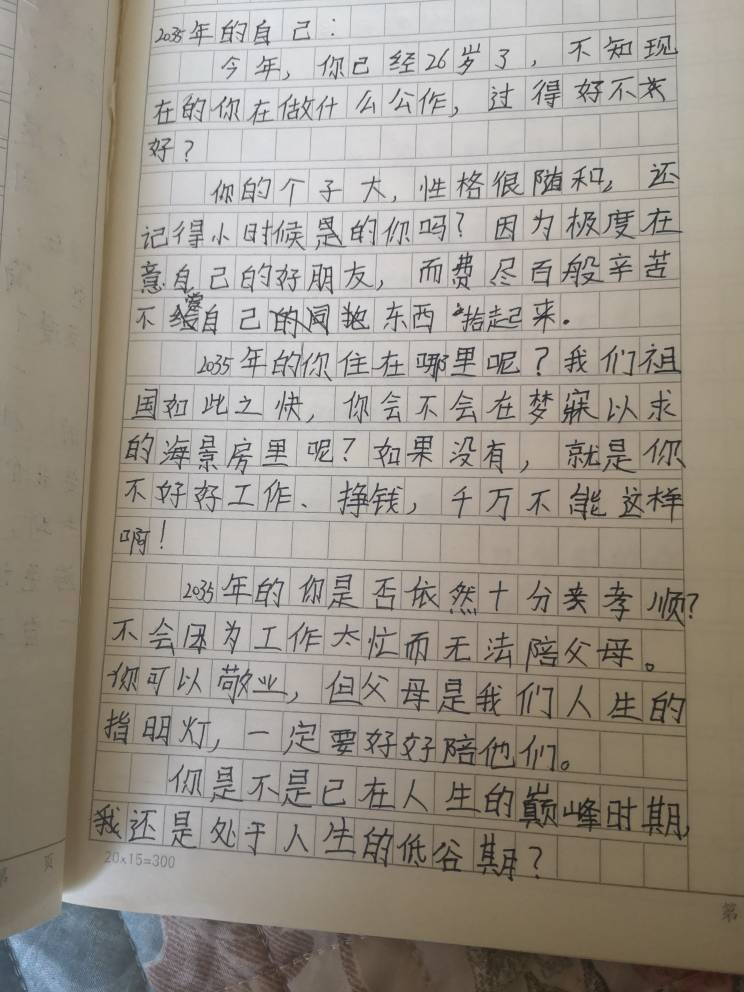 2035年的自己：
今年，你已经26岁了，不知现
在的你在做什么公作，过得好不
好？
你的个子大，性格很随和，还
记得小时候是的你吗？因为极度在
意自己的好朋友，而费尽百般辛苦
不 自己 东西 抬起来.
2035年的你住在哪里呢？我们祖
国如此之快，你会不会在梦寐以求
的海景房里呢？如果没有，就是你
不好好工作、挣钱，千万不能这样
啊！
2035年的你是否依然十分 孝顺？
不会因为工作太忙而无法陪父母。
你可以敬业，但父母是我们人生的
指明灯，一定要好好陪他们。
你是不是已在人生的巅峰时期，
我还是处于人生的低谷期？
20×15=300
第 页
第